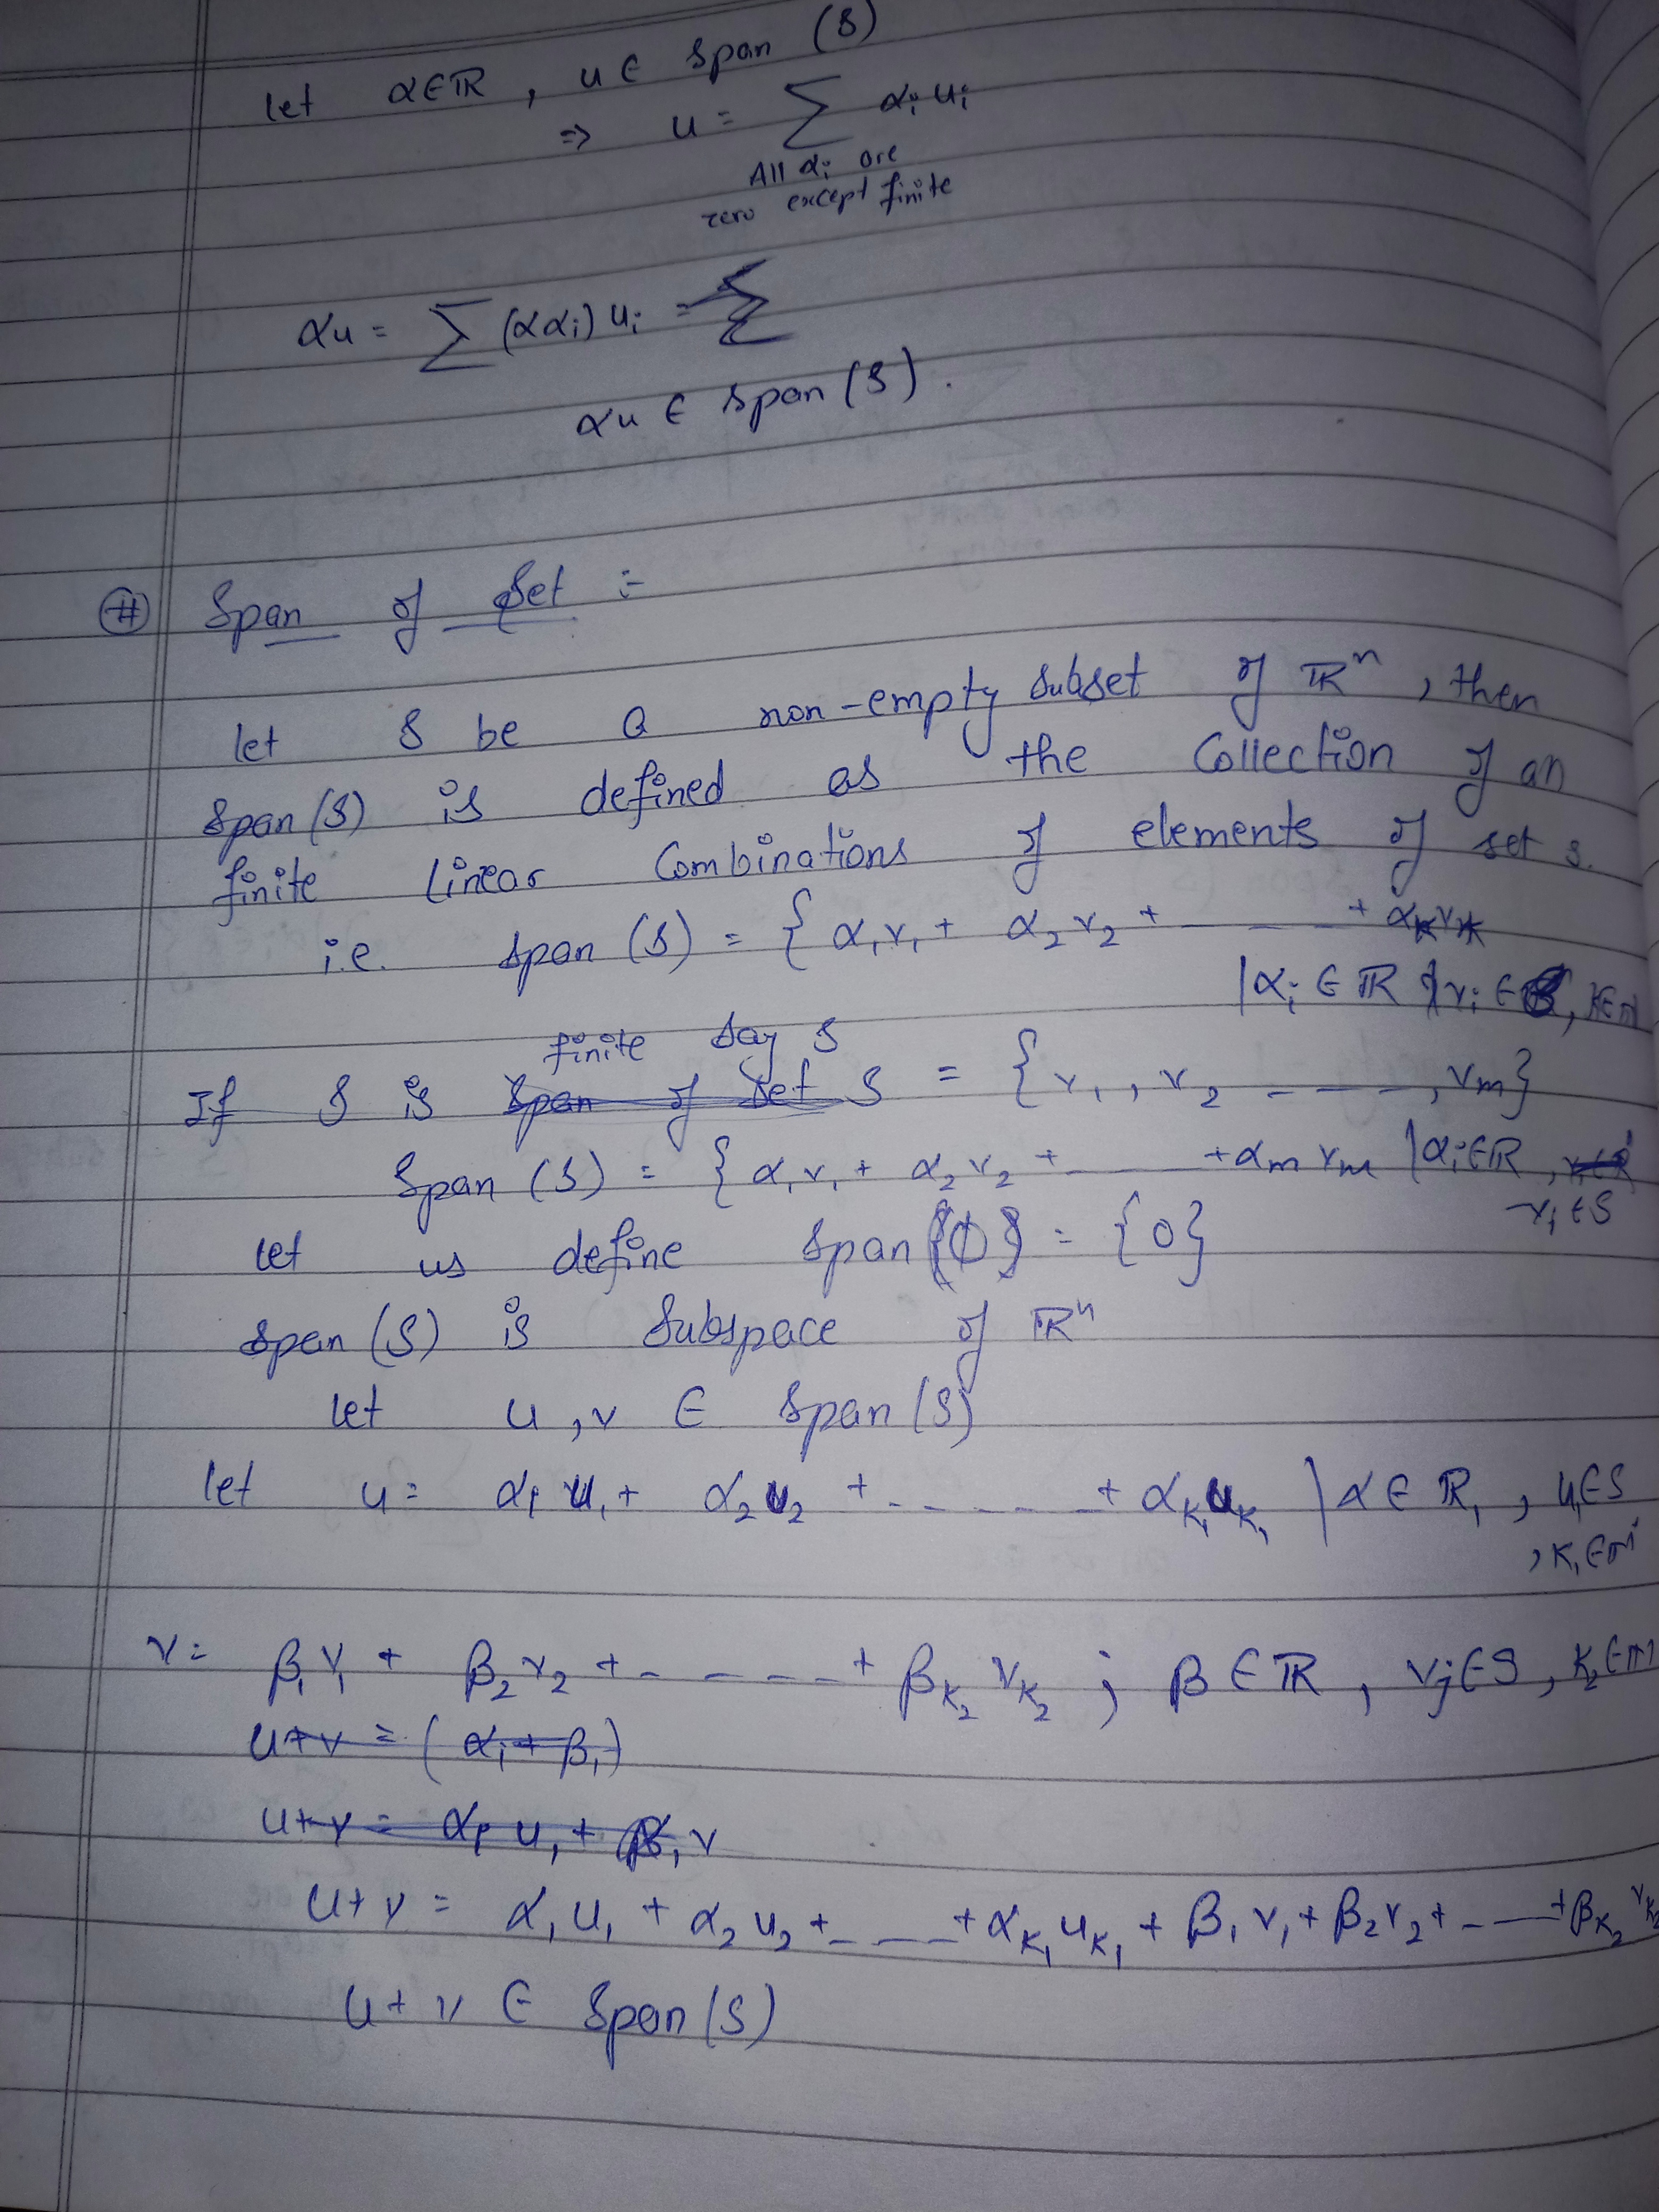 let α∈ℝ , u ∈ span (S)
⇒ u = ∑ αᵢ uᵢ
All αᵢ are
zero except finite
αu = ∑ (ααᵢ) uᵢ =
αu ∈ span (S) .
# Span of Set :-
let S be a non-empty subset of ℝⁿ , then
span (S) is defined as the Collection of an
finite linear Combinations of elements of set s.
i.e. span (S) = { α₁v₁ + α₂v₂ + ------ + αₖvₖ
| αᵢ ∈ ℝ vᵢ ∈ S, k∈ℕ
finite say S
If S is Span of Set S = { v₁ , v₂ ----- , vₘ}
Span (S) = { α₁v₁ + α₂v₂ + ------ + αₘ vₘ | αᵢ∈ℝ ,
vᵢ ∈ S
let us define span(ϕ) = {0}
span (S) is Subspace of ℝⁿ
let u , v ∈ span (S)
let u = α₁ u₁ + α₂u₂ + ------ + αₖ₁uₖ₁ | α ∈ ℝ, , uᵢ∈S
, k₁∈ℕ
v = β₁v₁ + β₂v₂ + ----- + βₖ₂ vₖ₂ ; β ∈ ℝ , vⱼ∈S , k₂∈ℕ
u+v = ( α₁ + β₁)
u+v = α₁ u₁ + β₁ v
u+v = α₁u₁ + α₂u₂ + ----- + αₖ₁uₖ₁ + β₁v₁ + β₂v₂ + ---- + βₖ₂ vₖ₂
u + v ∈ span (S)